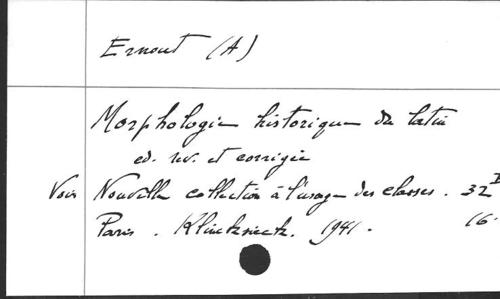 Ernout (A)
Morphologie historique du latin
ed. rev. et corrigée
Voir Nouvelle collection à l'usage des classes. 32
Paris. Klincksieck. 1941.
16.